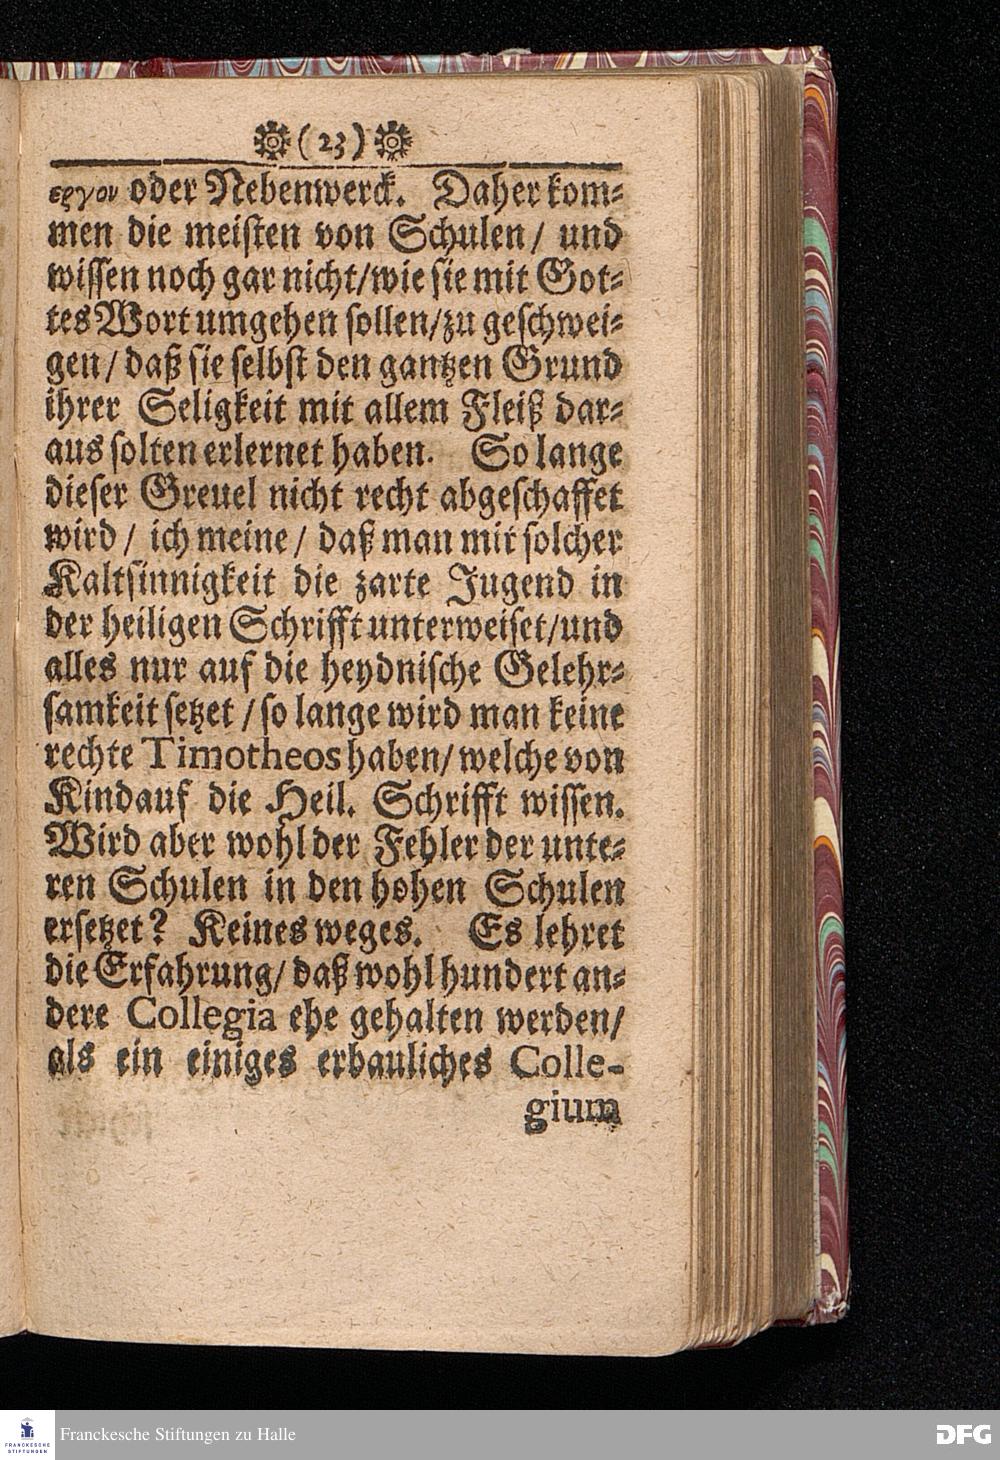 (23)
εργον oder Nebenwerck. Daher kom⸗
men die meisten von Schulen/ und
wissen noch gar nicht/wie sie mit Got⸗
tes Wort umgehen sollen/zu geschwei⸗
gen/ daß sie selbst den gantzen Grund
ihrer Seligkeit mit allem Fleiß dar⸗
aus solten erlernet haben. So lange
dieser Greuel nicht recht abgeschaffet
wird/ ich meine/ daß man mit solcher
Kaltsinnigkeit die zarte Jugend in
der heiligen Schrifft unterweiset/und
alles nur auf die heydnische Gelehr⸗
samkeit setzet /so lange wird man keine
rechte Timotheos haben/ welche von
Kindauf die Heil. Schrifft wissen.
Wird aber wohl der Fehler der unte⸗
ren Schulen in den hohen Schulen
ersetzet? Keines weges. Es lehret
die Erfahrung/ daß wohl hundert an⸗
dere Collegia ehe gehalten werden/
als ein einiges erbauliches Colle-
gium
FRANCKESCHE
STIFTUNGEN
Franckesche Stiftungen zu Halle
DFG